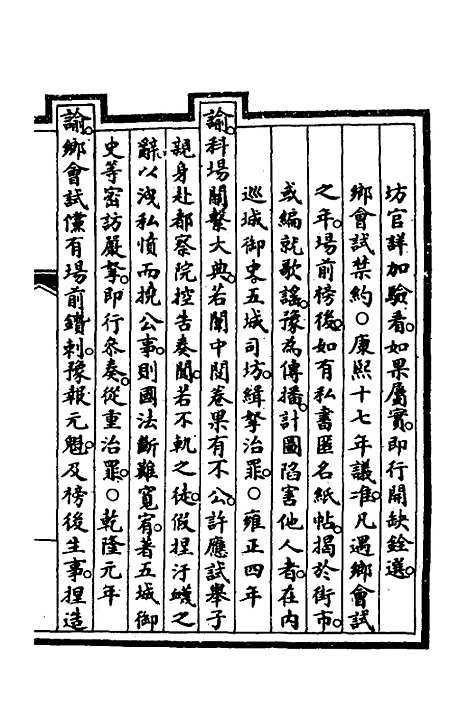 坊官詳加驗看。如果屬實。即行開缺銓選。
鄉會試禁約○康熙十七年議准。凡遇鄉會試
之年。場前榜後。如有私書匿名紙帖。揭於街市。
或編就歌謠。豫為傳播。計圖陷害他人者。在內
巡城御史。五城司坊。緝拏治罪。○雍正四年
諭。科場關繫大典。若闈中閱卷果有不公。許應試舉子
親身赴都察院控告奏聞。若不軌之徒。假捏汙衊之
辭。以洩私憤而撓公事。則國法斷難寬宥。著五城御
史等密訪嚴拏。即行參奏。從重治罪。○乾隆元年
諭。鄉會試儻有場前鑽刺。豫報元魁。及榜後生事。捏造